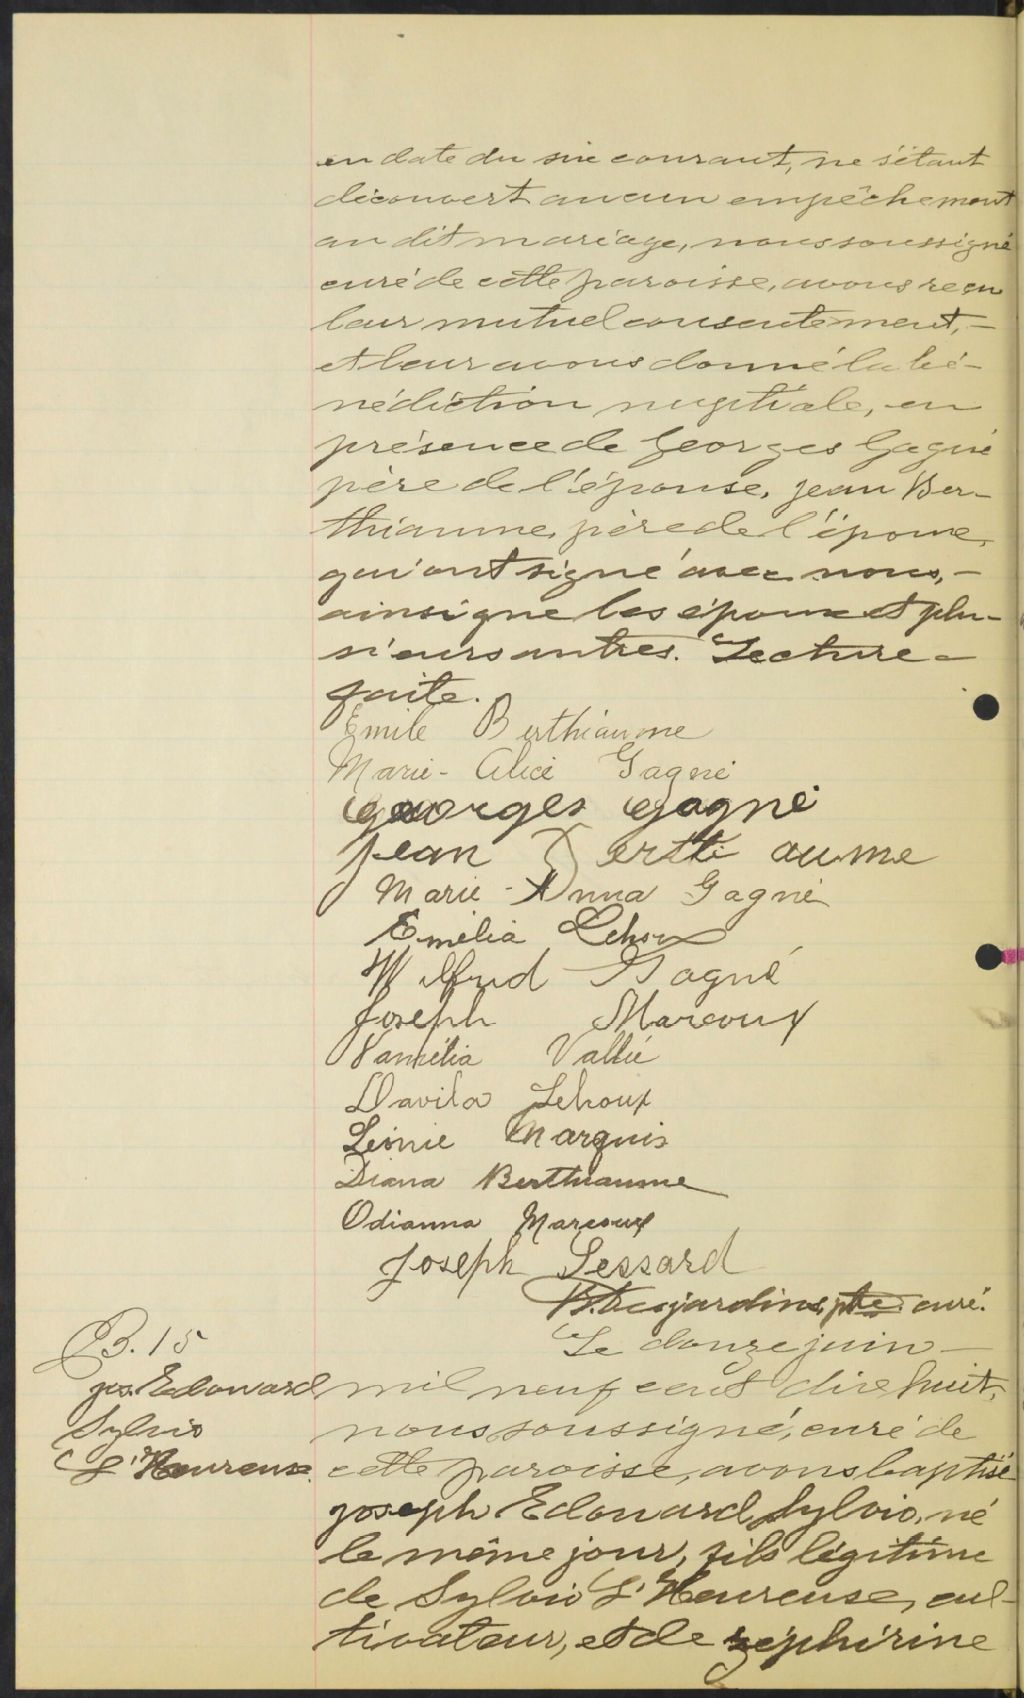 en date du six courant, ne s'étant
découvert aucun empêchement
au dit mariage, nous soussigné
curé de cette paroisse, avons reçu
leur mutuel consentement, -
et leur avons donné la bé-
nédiction nuptiale, en
présence de Georges Gagné
père de l'épouse, Jean Ber-
thiaume, père de l'époux,
qui ont signé avec nous, -
ainsi que les époux et plu-
sieurs autres. Lecture -
faite.
Emile Berthiaume
Marie-Alice Gagné
Georges Gagné
Jean Berthiaume
Marie-Anna Gagné
Emélia Lehoux
Wilfrid Gagné
Joseph Marcoux
Vallée
Davila Lehoux
Léonie Marquis
Diana Berthiaume
Odianna Marcoux
Joseph Lessard
Desjardins, ptre curé.
B. 15
Jos. Edouard
Sylvio
L'Heureux.
Le douze juin -
mil neuf cent dix huit,
nous soussigné, curé de
cette paroisse, avons baptisé
Joseph Edouard Sylvio, né
le même jour, fils légitime
de Sylvio L'Heureux, cul-
tivateur, et de Zéphirine